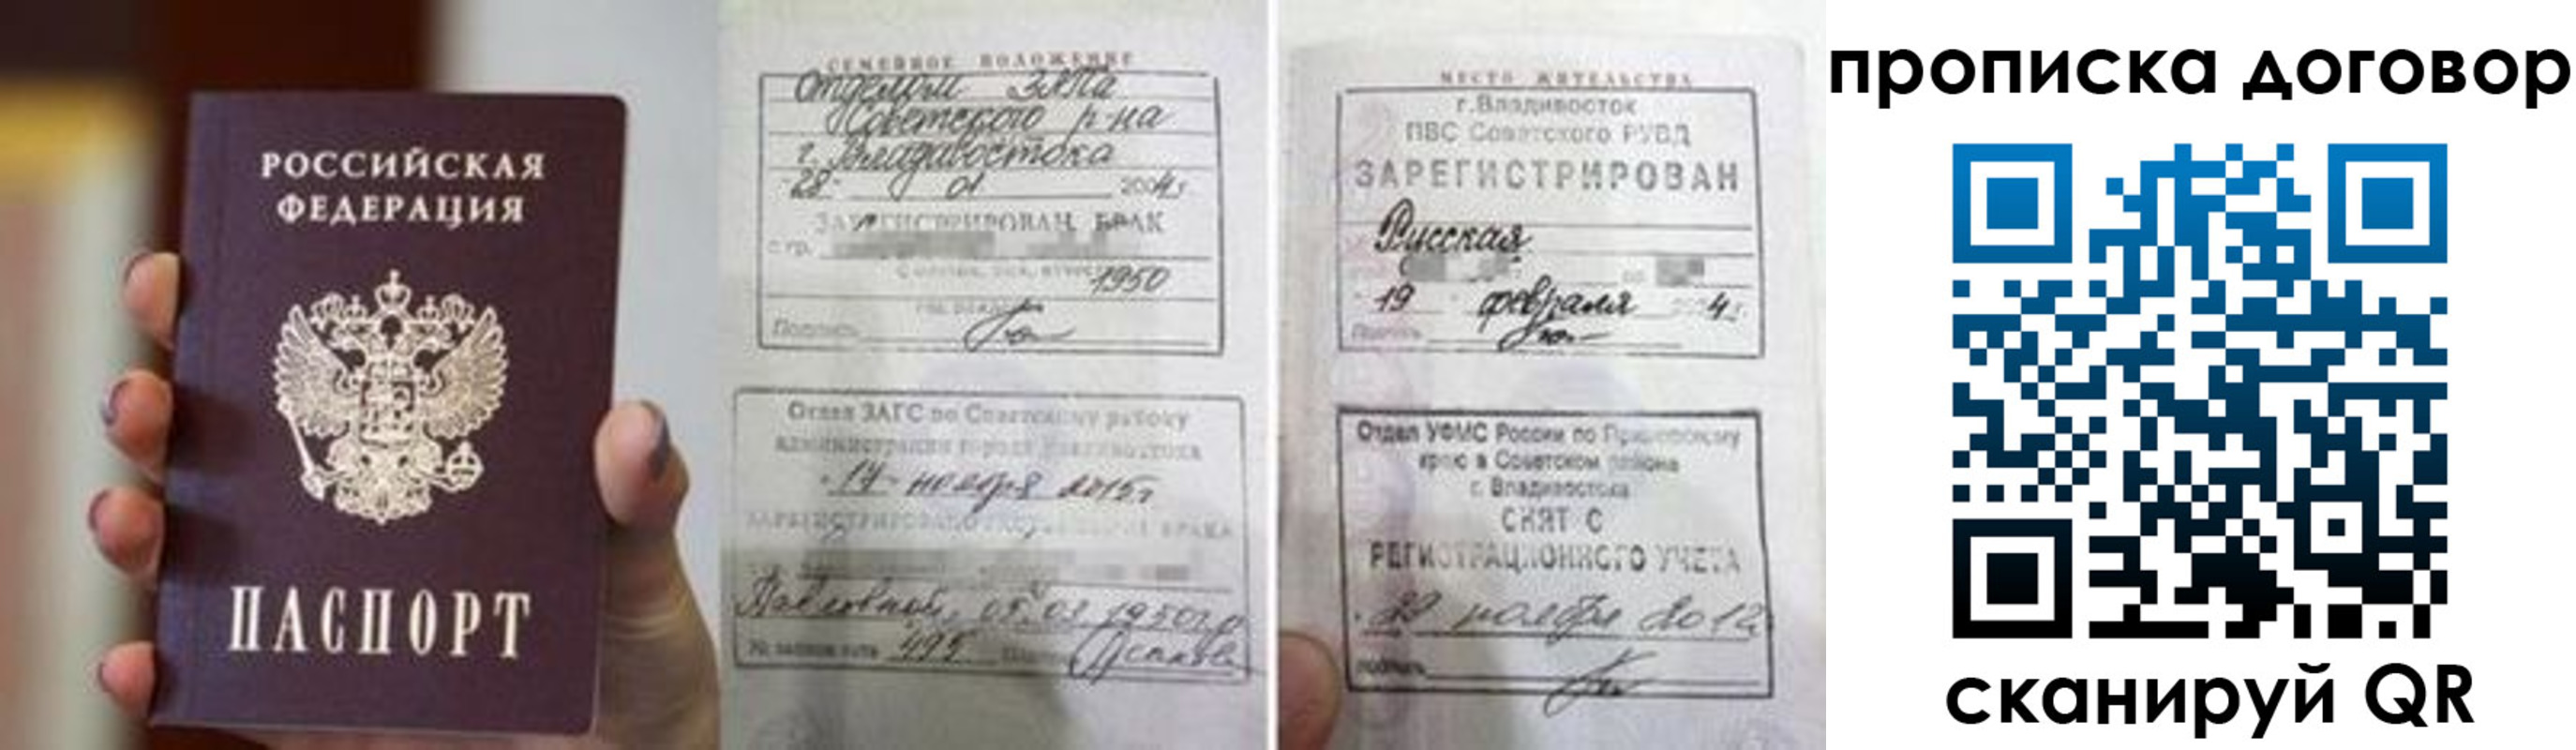 РОССИЙСКАЯ
ФЕДЕРАЦИЯ
ПАСПОРТ
СЕМЕЙНОЕ ПОЛОЖЕНИЕ
Отделом ЗАГСа
Советского р-на
г. Владивостока
28 01 2004г.
ЗАРЕГИСТРИРОВАН БРАК
с гр.
1950
Подпись
Отдел ЗАГС по Советскому району
администрации города Владивостока
17 ноября 2015г
БРАКА
Павловной, 05.03.1950г.р
495
МЕСТО ЖИТЕЛЬСТВА
г.Владивосток
ПВС Советского РУВД
ЗАРЕГИСТРИРОВАН
Русская
19 февраля 4г.
Подпись
Отдел УФМС России по Приморскому
краю в Советском районе
г. Владивостока
СНЯТ С
РЕГИСТРАЦИОННОГО УЧЕТА
ноября 2012
подпись
прописка договор
сканируй QR